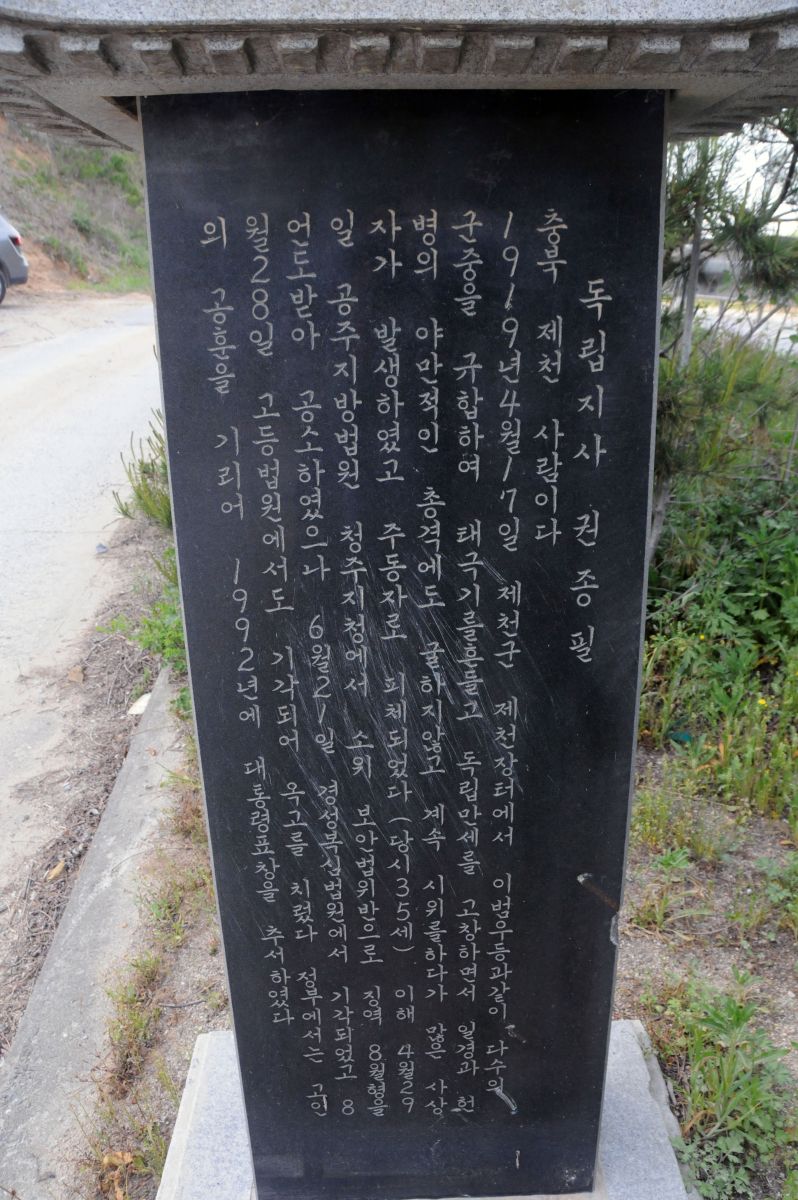 독립지사 권종필
충북 제천 사람이다
1919년4월17일 제천군 제천장터에서 이범우등과같이 다수의
군중을 규합하여 태극기를흔들고 독립만세를 고창하면서 일경과 헌
병의 야만적인 총격에도 굴하지않고 계속 시위를하다가 많은 사상
자가 발생하였고 주동자로 피체되었다 (당시35세) 이해 4월29
일 공주지방법원 청주지청에서 소위 보안법위반으로 징역 8월형을
언도받아 공소하였으나 6월21일 경성복심법원에서 기각되었고 8
월28일 고등법원에서도 기각되어 옥고를 치렀다 정부에서는 고인
의 공훈을 기리어 1992년에 대통령표창을 추서하였다